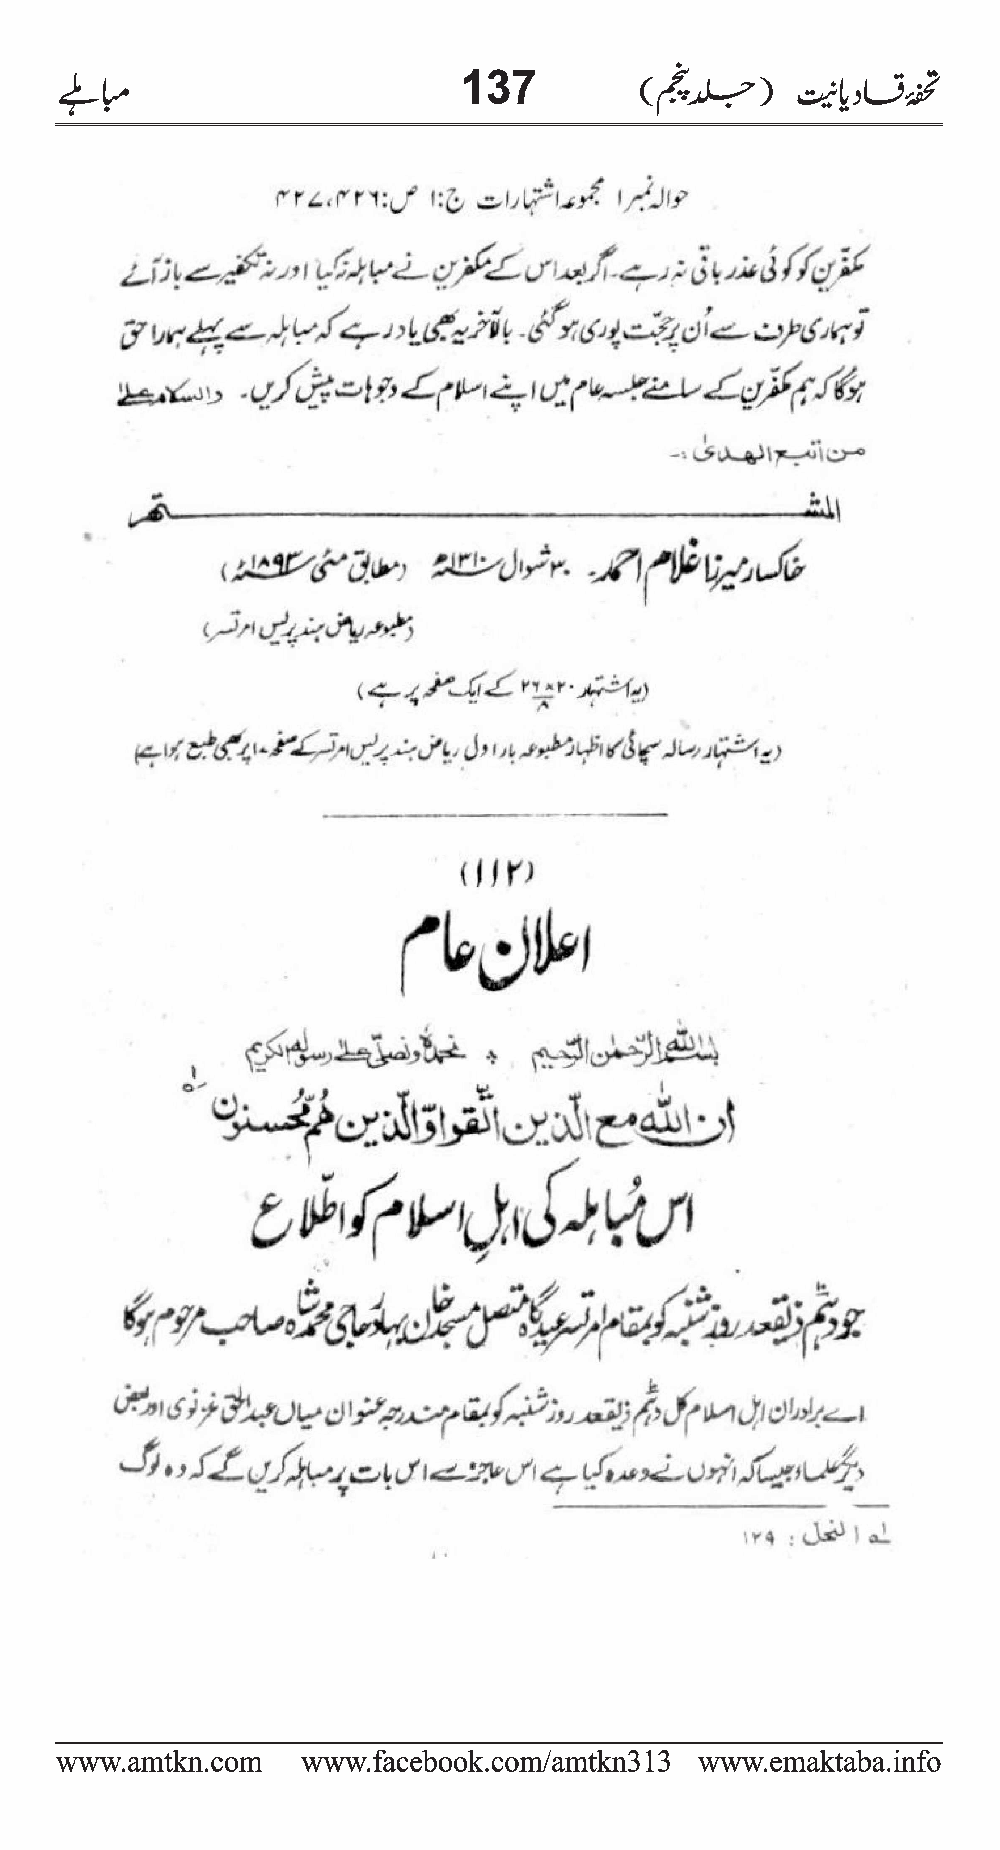 تحفۂ قادیانیت (جلد پنجم) 137 مباہلے
حوالہ نمبر ۱ مجموعہ اشتہارات ج:۱ ص:۴۲۶، ۴۲۷
مکفّرین کو کوئی عذر باقی نہ رہے۔ اگر بعد اس کے مکفرین نے مباہلہ نہ کیا اور نہ تکفیر سے باز آئے
تو ہماری طرف سے اُن پر حجّت پوری ہو گئی۔ بالآخر یہ بھی یاد رہے کہ مباہلہ سے پہلے ہمارا حق
ہوگا کہ ہم مکفّرین کے سامنے جلسہ عام میں اپنے اسلام کے وجوہات پیش کریں۔ والسلام علیٰ
من اتبع الہدیٰ :۔
المشتہر
خاکسار میرزا غلام احمد۔ ۳۰ شوال ۱۳۱۰ھ (مطابق مئی ۱۸۹۳ء)
(مطبوعہ ریاض ہند پریس امرتسر)
(یہ اشتہار ۲۰×۲۶/۸ کے ایک صفحہ پر ہے)
(یہ اشتہار رسالہ سچائی کا اظہار مطبوعہ بار اول ریاض ہند پریس امرتسر کے صفحہ ۱۰ پر بھی طبع ہوا ہے)
(۱۱۲)
اعلان عام
بسم اللہ الرحمٰن الرحیم ٭ نحمدہٗ ونصلّی علیٰ رسولہ الکریم
ان اللہ مع الّذین اتّقوا وّالّذین ھُم مُّحسنون لہ
اس مُباہلہ کی اہلِ اسلام کو اطّلاع
جو دہم ذیقعد روز شنبہ کو بمقام امرتسر عیدگاہ متصل مسجد خان بہادر حاجی محمد شاہ صاحب مرحوم ہوگا
اے برادران اہل اسلام کل دہم ذیقعد روز شنبہ کو بمقام مندرجہ عنوان میاں عبدالحق غزنوی اور بعض
دیگر علماء جیسا کہ انہوں نے وعدہ کیا ہے اس عاجز سے اس بات پر مباہلہ کریں گے کہ وہ لوگ
لہ النحل : ۱۲۹
www.amtkn.com www.facebook.com/amtkn313 www.emaktaba.info